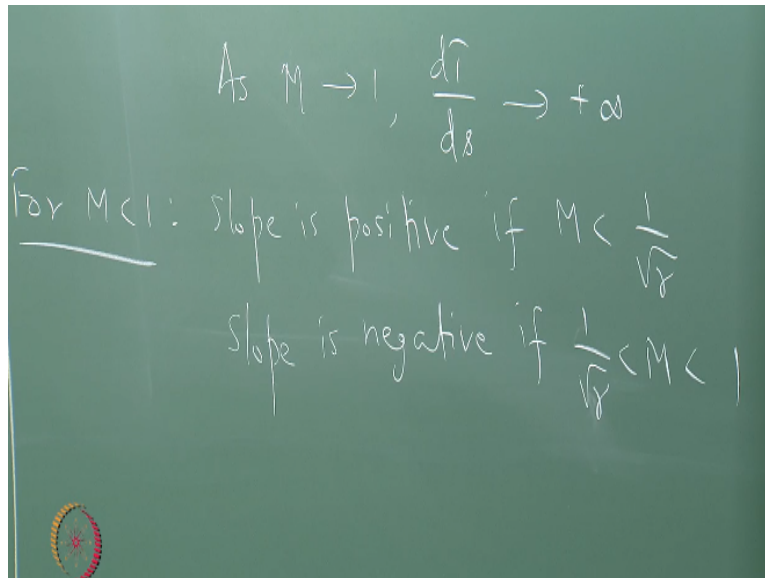 As M → 1, dT/ds → +∞
For M < 1: Slope is positive if M < 1/√γ
Slope is negative if 1/√γ < M < 1